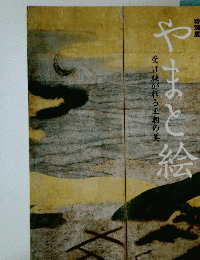 特別展
やまと絵
受け継がれる王朝の美